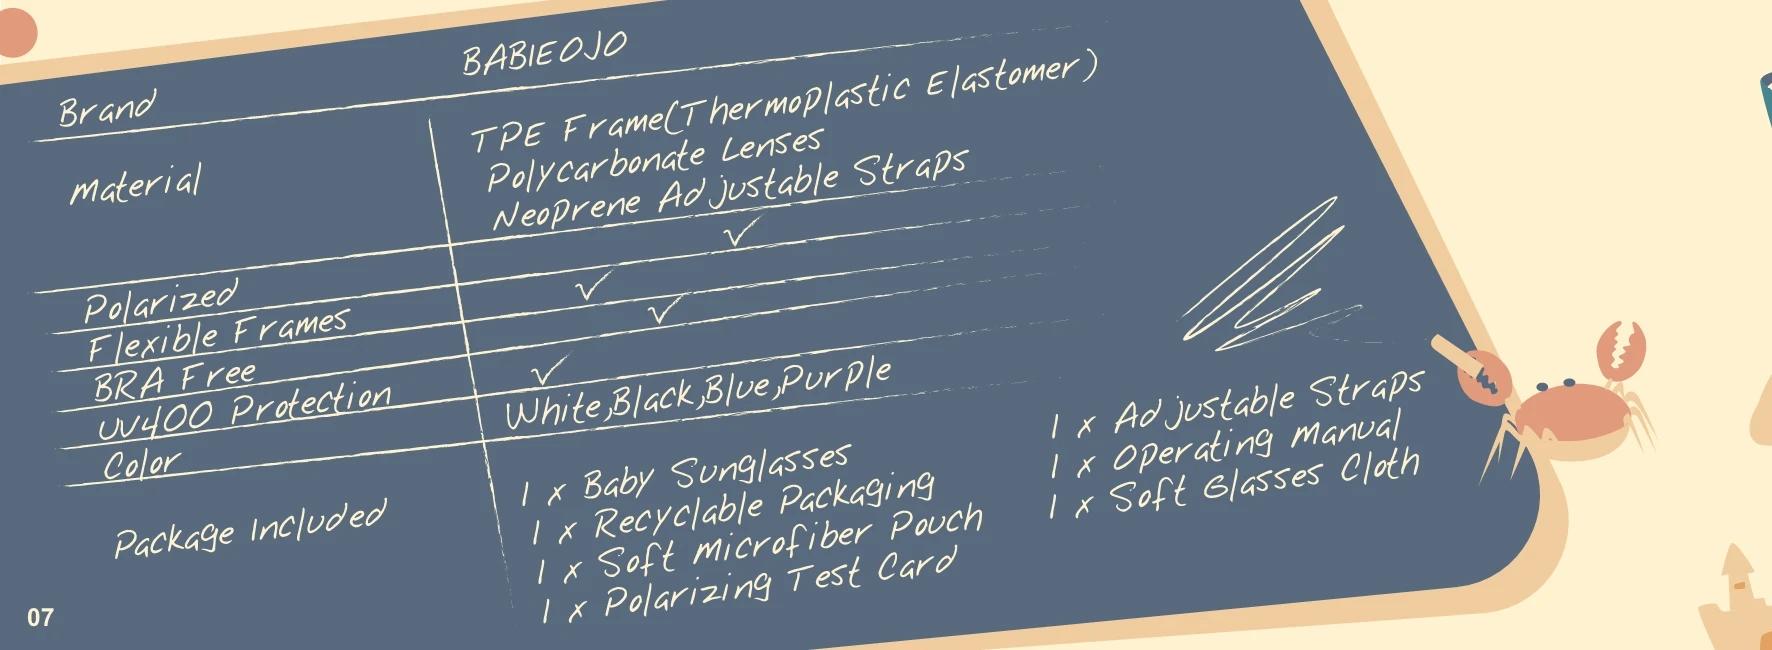 Brand BABIEOJO
Material TPE Frame(Thermoplastic Elastomer)
Polycarbonate Lenses
Neoprene Adjustable Straps
Polarized ✓
Flexible Frames ✓
BRA Free ✓
UV400 Protection ✓
Color White,Black,Blue,Purple
Package Included
1 x Baby Sunglasses
1 x Recyclable Packaging
1 x Soft Microfiber Pouch
1 x Polarizing Test Card
1 x Adjustable Straps
1 x Operating Manual
1 x Soft Glasses Cloth
07